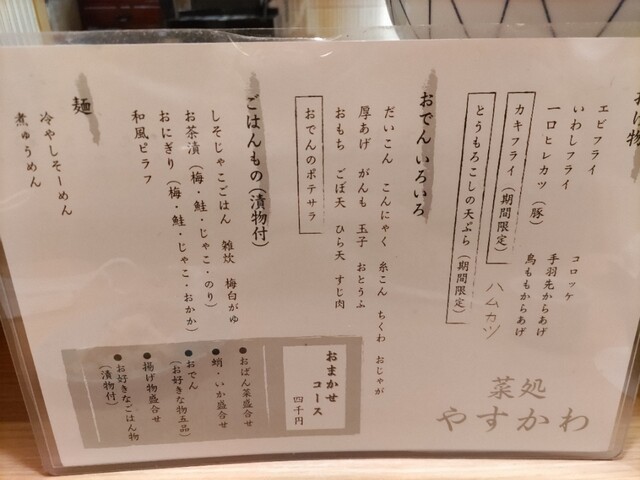 揚げ物
エビフライ
いわしフライ
一口ヒレカツ（豚）
カキフライ（期間限定）
とうもろこしの天ぷら（期間限定）
コロッケ
手羽先からあげ
鳥ももからあげ
ハムカツ
おでんいろいろ
だいこん こんにゃく 糸こん ちくわ おじゃが
厚あげ がんも 玉子 おとうふ
おもち ごぼ天 ひら天 すじ肉
おでんのポテサラ
ごはんもの（漬物付）
しそじゃこごはん 雑炊 梅白がゆ
お茶漬（梅・鮭・じゃこ・のり）
おにぎり（梅・鮭・じゃこ・おかか）
和風ピラフ
麺
冷やしそーめん
煮ゅうめん
おまかせ
コース
四千円
●おばん菜盛合せ
●蛸・いか盛合せ
●おでん
（お好きな物五品）
●揚げ物盛合せ
●お好きなごはん物
（漬物付）
菜処
やすかわ